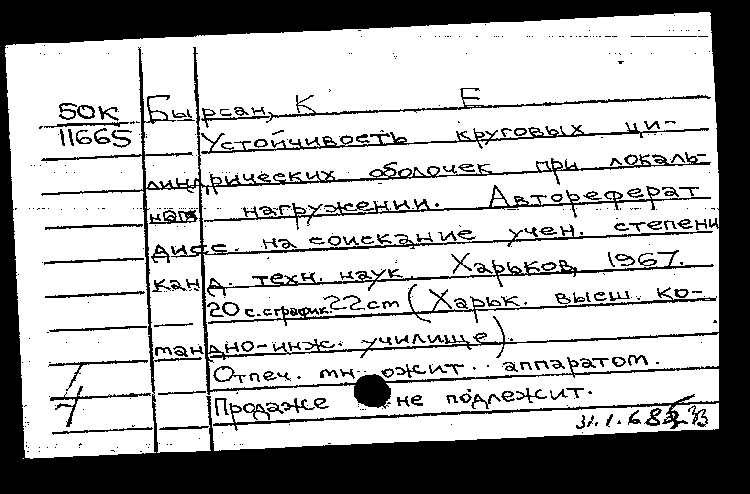 50К Бырсан, К Е
11665 Устойчивость круговых ци-
линдрических оболочек при локаль-
ном нагружении. Автореферат
дисс. на соискание учен. степени
канд. техн. наук. Харьков, 1967.
20 с. с график. 22 cm (Харьк. высш. ко-
мандно-инж. училище).
Отпеч. множит. аппаратом.
Продаже не подлежит.
31.1.68